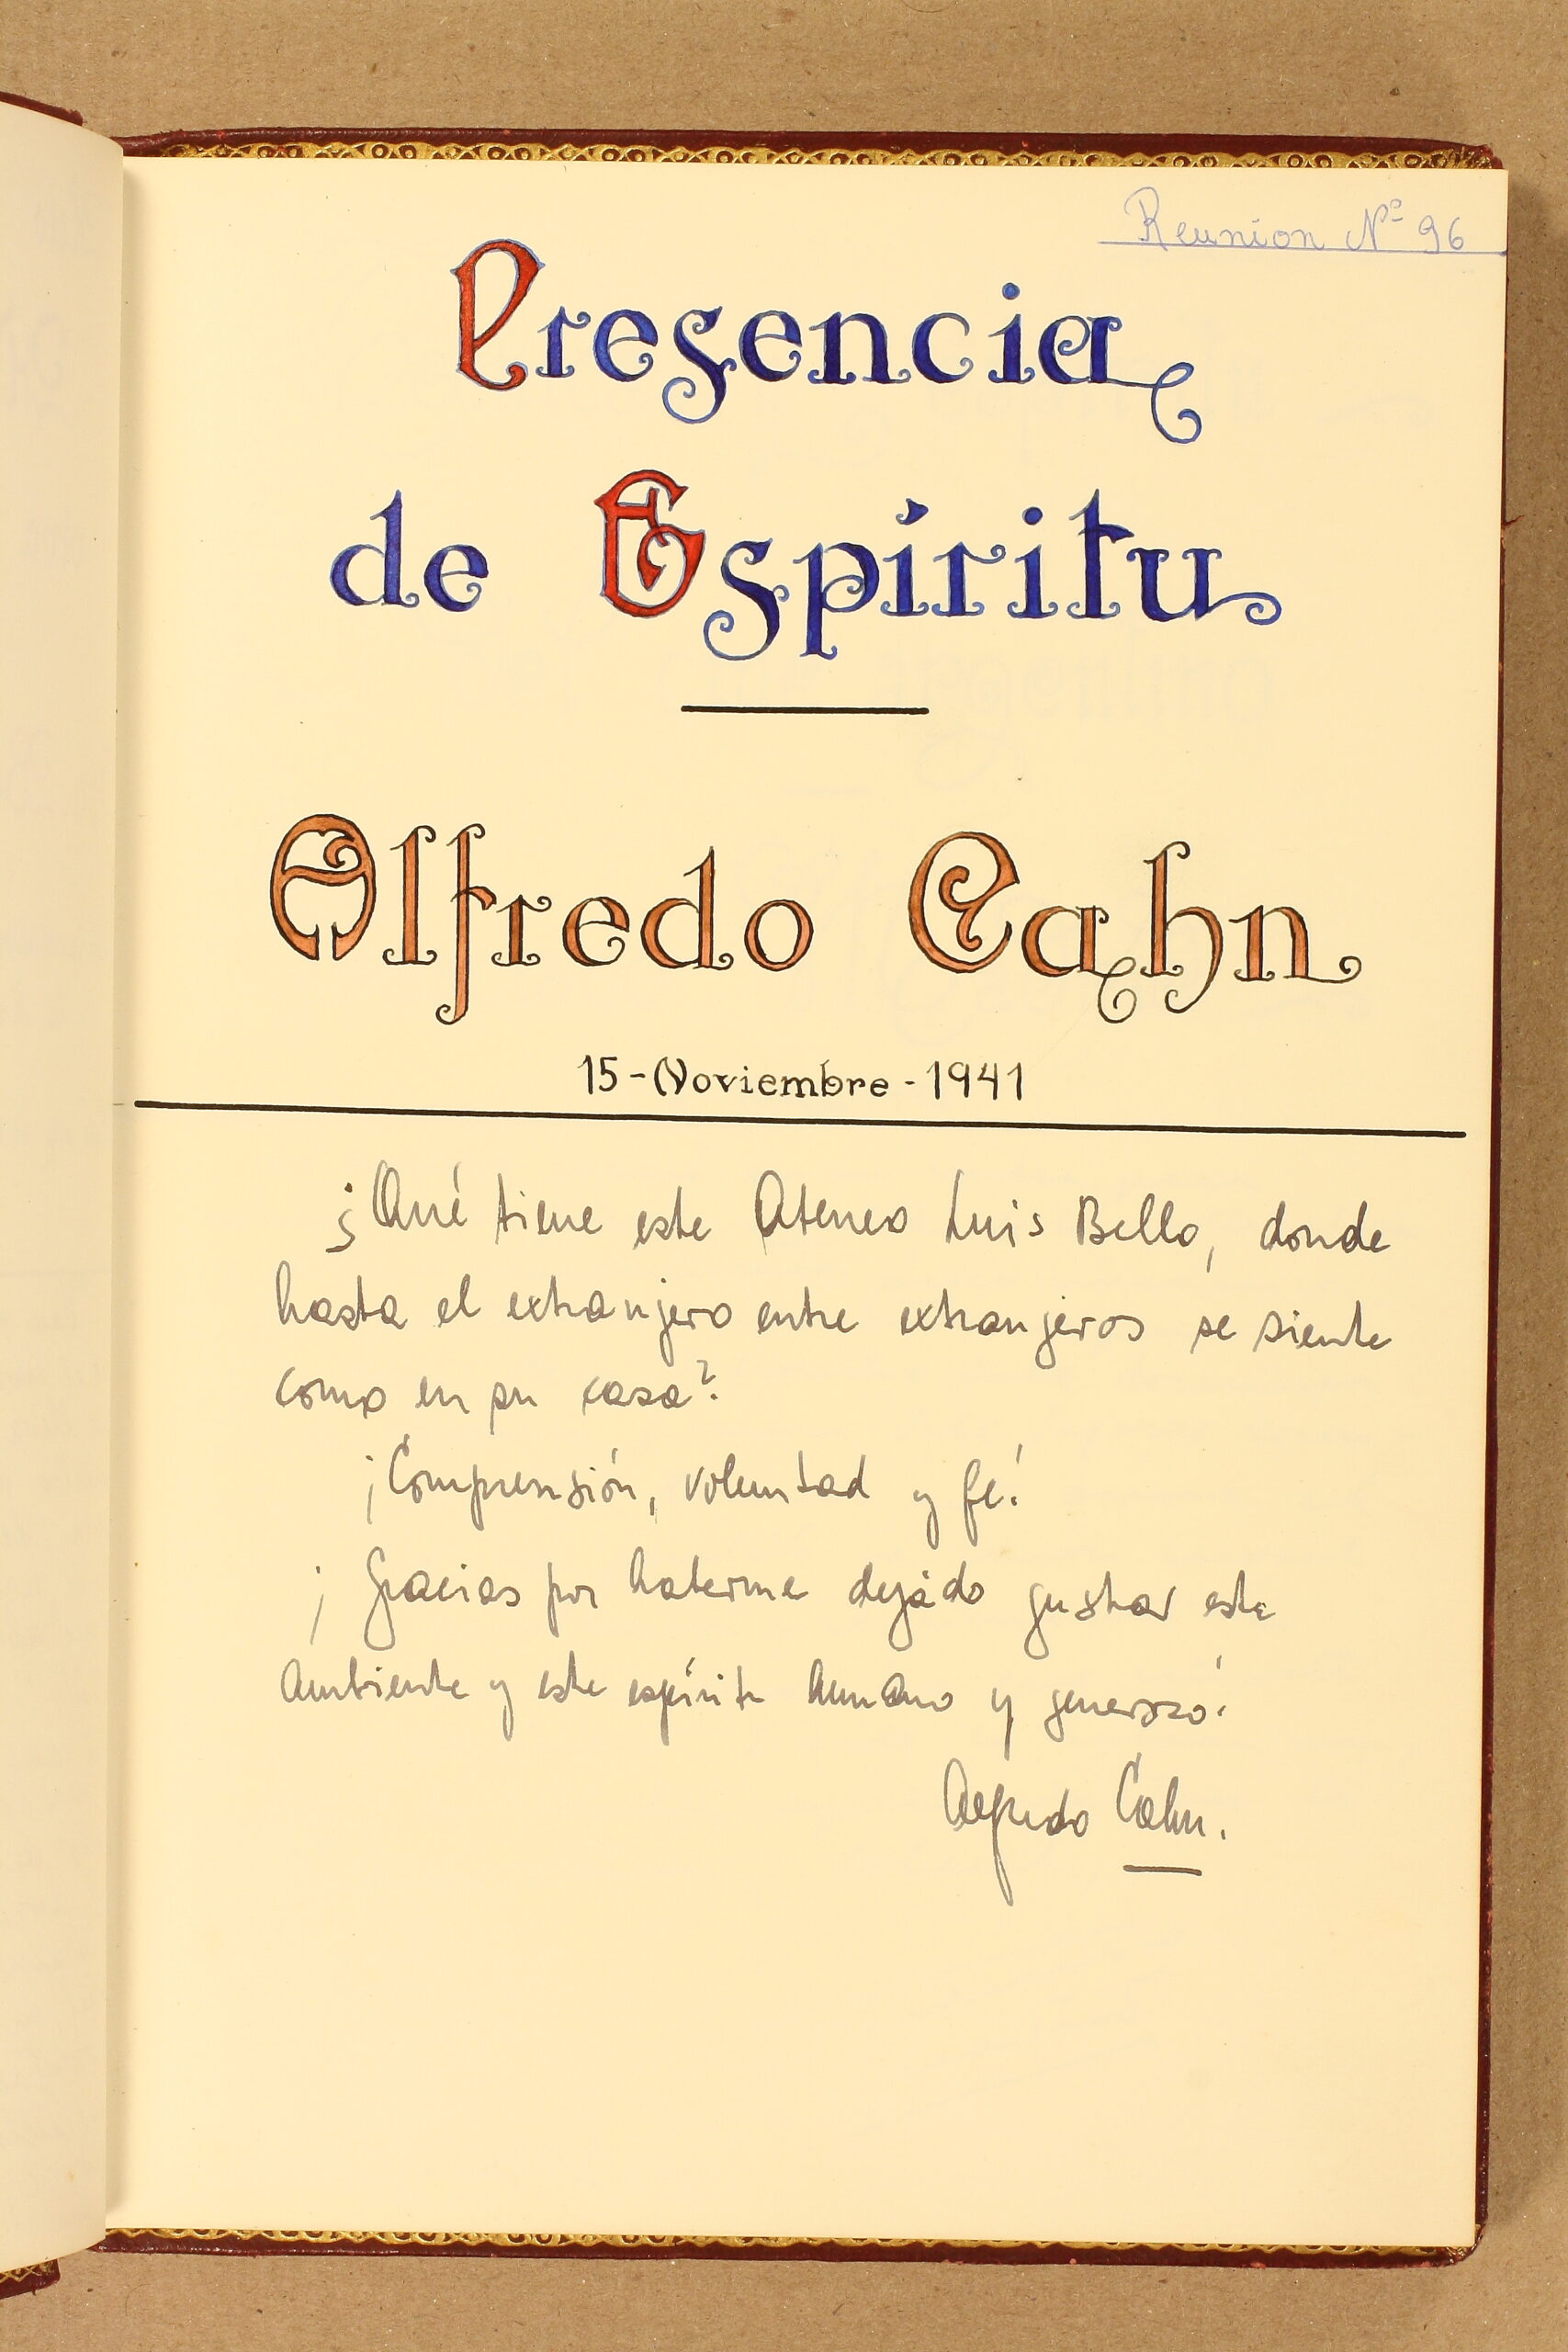 Reunion Nº 96
Presencia
de Espíritu
Alfredo Cahn
15-Noviembre-1941
¿Qué tiene este Ateneo Luis Bello, donde
hasta el extranjero entre extranjeros se siente
como en su casa?
¡Comprensión, voluntad y fe!
¡Gracias por haberme dejado gustar este
ambiente y este espíritu humano y generoso!
Alfredo Cahn.